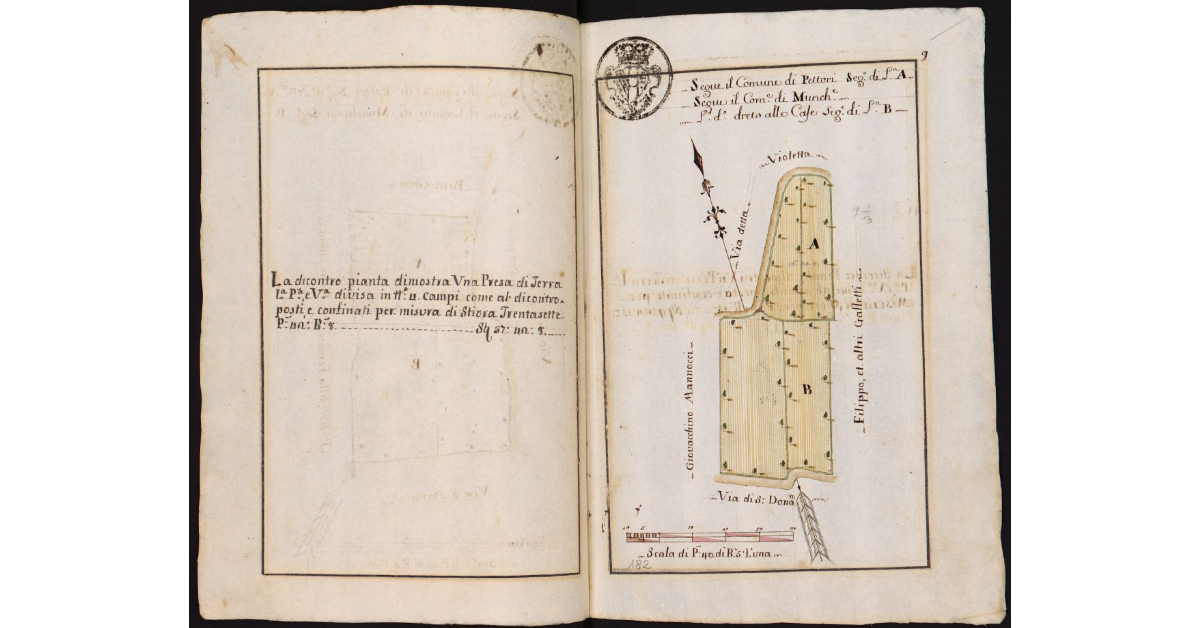 La dicontro pianta dimostra Vna Presa di Terra
La. Pa., e Va. divisa in tto. 4. campi come al dicontro-
posti, e confinati per misura di Stiora Trentasette
Pe. B.e 8. 37:
9
Segue il Comune di Pettori Sego. di La. A
Segue il Come. di Munche.
La. da. dreto alle Case Sego. di La. B
Violetta
Via detta
A
B
Giovacchino Mannocci
Filippo, et. altri Galletti
Via di S: Dona.
Scala di Pe. 40. di B.e 5. L'una
182